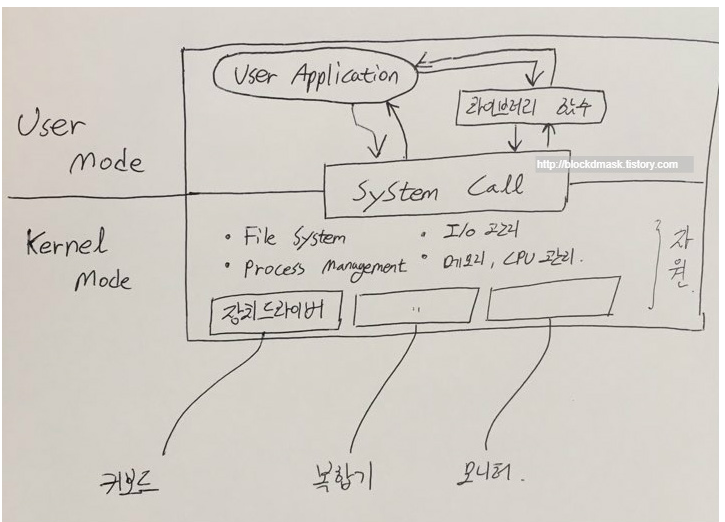 User Application
User
Mode
라이브러리 함수
http://blockdmask.tistory.com
System Call
Kernel
Mode
• File System
• I/O 관리
• Process Management
• 메모리, CPU 관리.
자원.
장치드라이버
..
키보드
복합기
모니터.